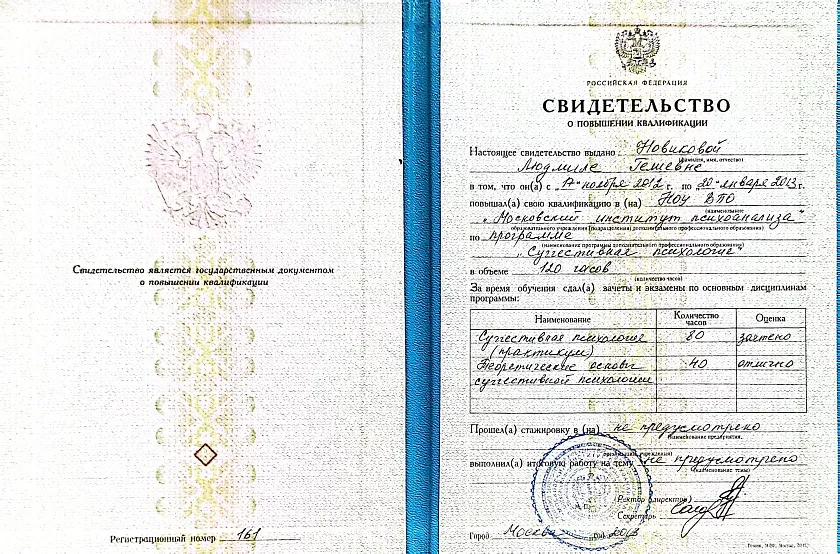 Свидетельство является государственным документом
о повышении квалификации
Регистрационный номер 161
РОССИЙСКАЯ ФЕДЕРАЦИЯ
СВИДЕТЕЛЬСТВО
О ПОВЫШЕНИИ КВАЛИФИКАЦИИ
Настоящее свидетельство выдано Новиковой
(фамилия, имя, отчество)
Людмиле
в том, что он(а) с "17" ноября 2012 г. по "20" января 2013 г.
повышал(а) свою квалификацию в (на) НОУ ВПО
(наименование
"Московский институт психоанализа"
образовательного учреждения (подразделения) дополнительного профессионального образования)
по программе
(наименование программы дополнительного профессионального образования)
"Суггестивная психология"
в объеме 120 часов
(количество часов)
За время обучения сдал(а) зачеты и экзамены по основным дисциплинам
программы:
Наименование Количество часов Оценка
Суггестивная психология 80 зачтено
(практикум)
Теоретические основы 40 отлично
суггестивной психологии
Прошел(а) стажировку в (на) не предусмотрено
(наименование предприятия,
организации, учреждения)
выполнил(а) итоговую работу на тему не предусмотрено
(наименование темы)
Ректор (директор)
Секретарь
Город Москва год 2013